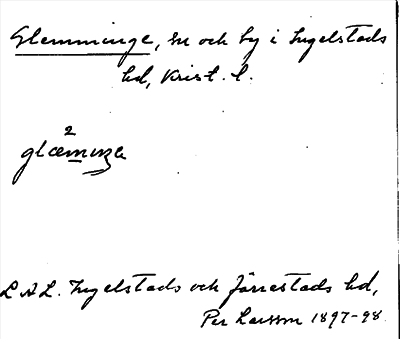 Glemminge, sn och by i Ingelstads
hd, Krist. l.
2
glæminge
LAL. Ingelstads och Järrestads hd,
Per Larsson 1897-98